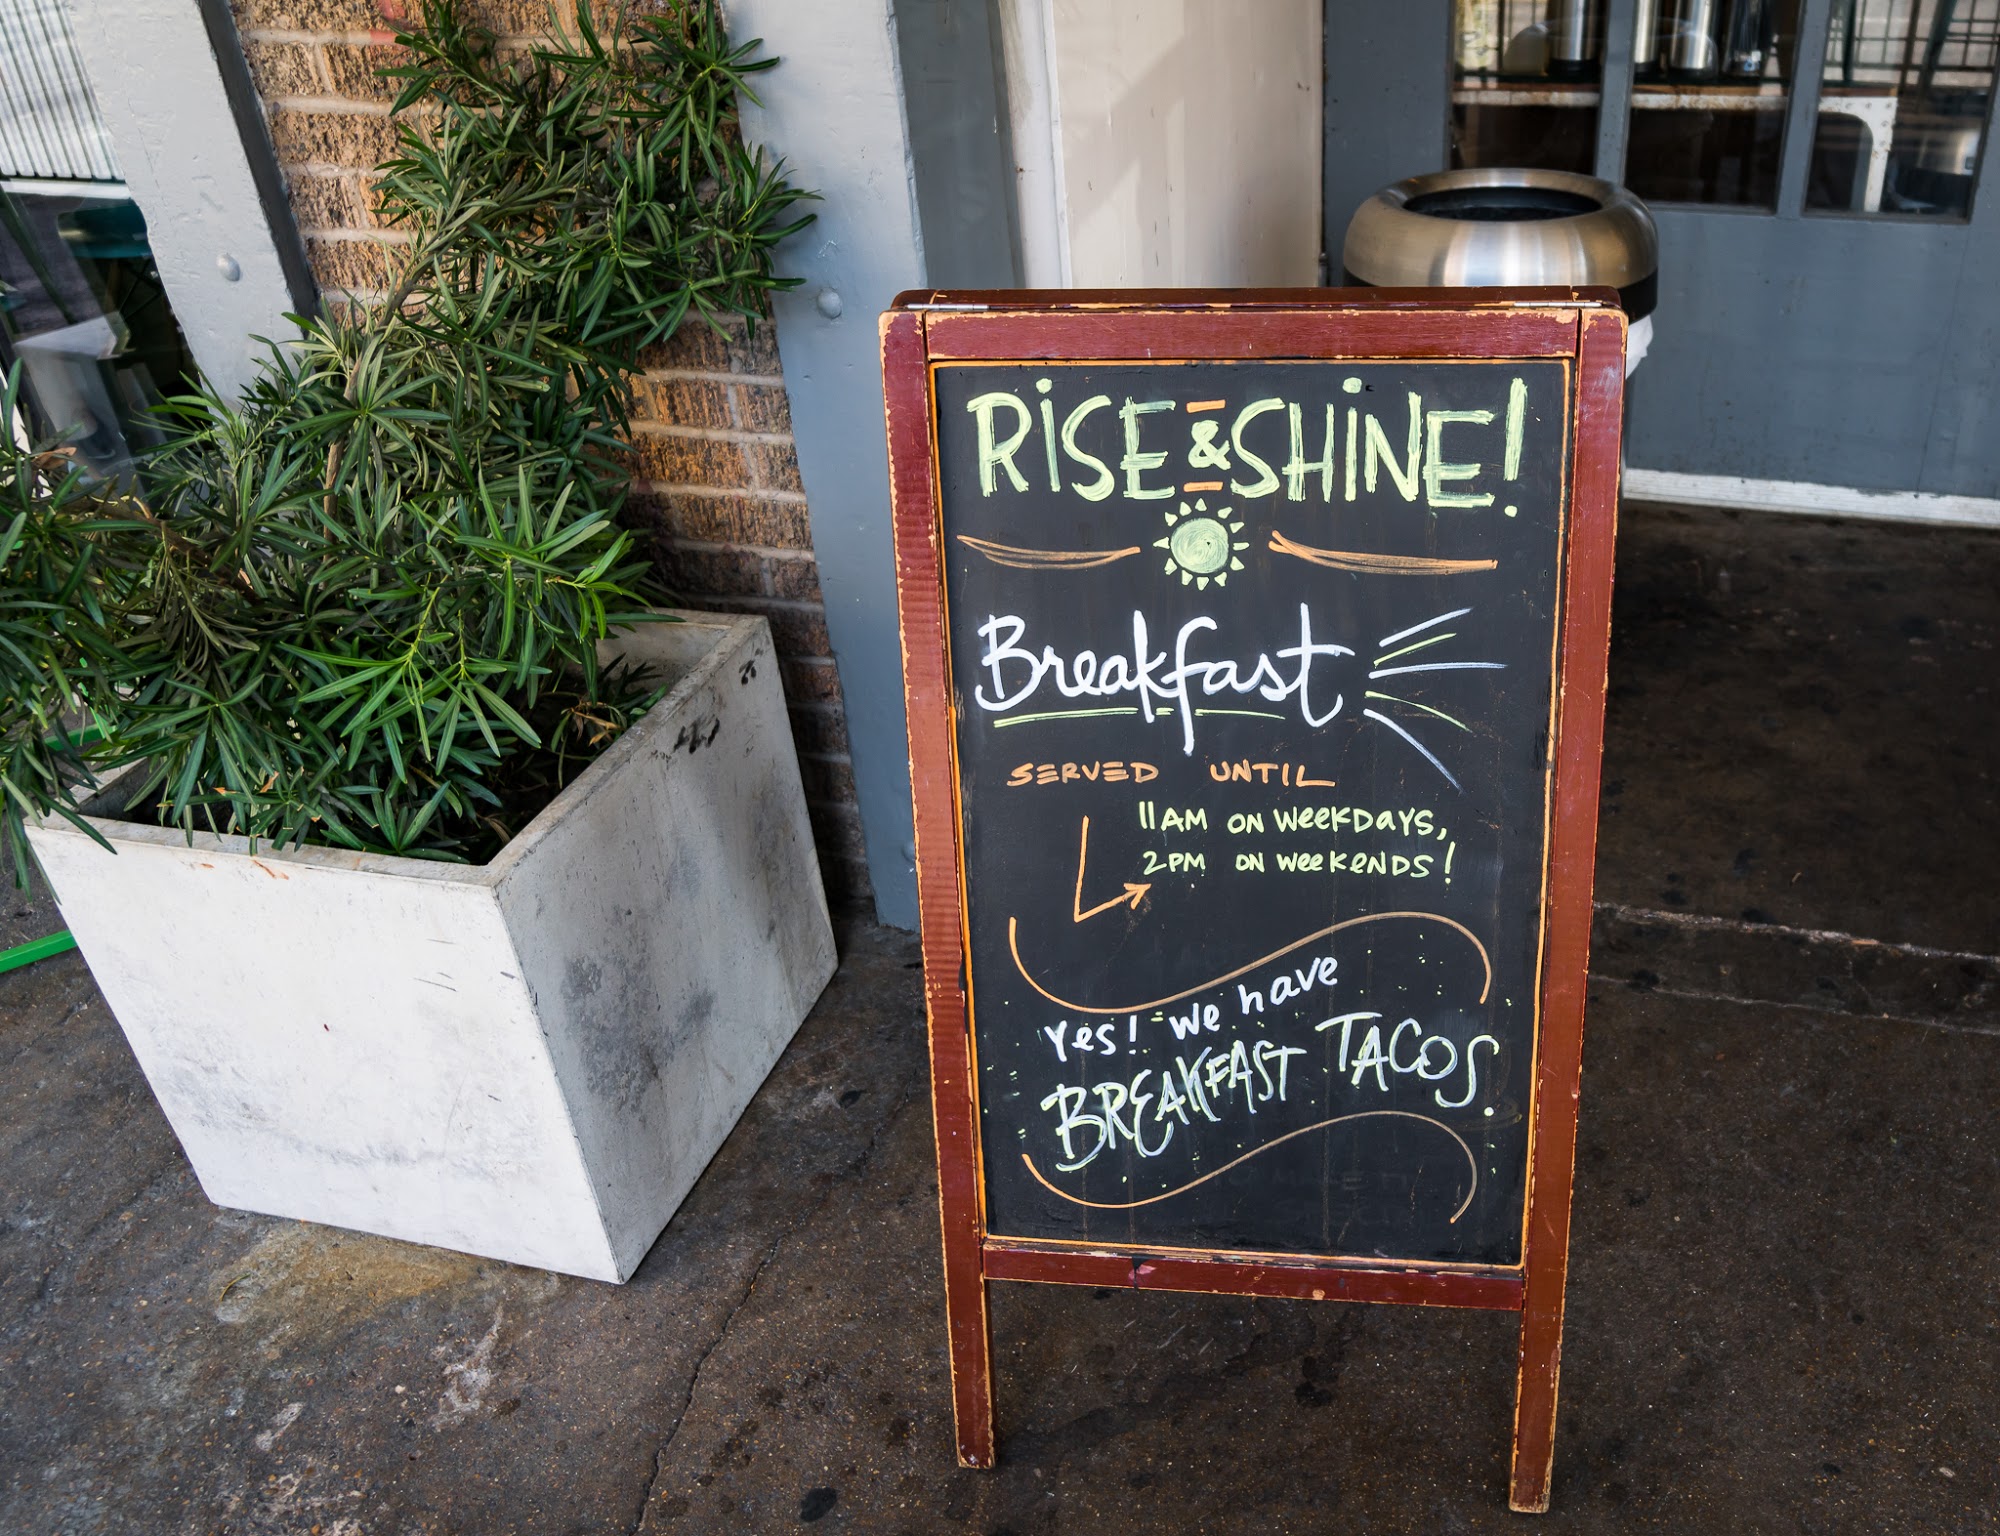 RISE & SHINE!
Breakfast
SERVED UNTIL
11AM ON WEEKDAYS,
2PM ON WEEKENDS!
Yes! We have
BREAKFAST TACOS.